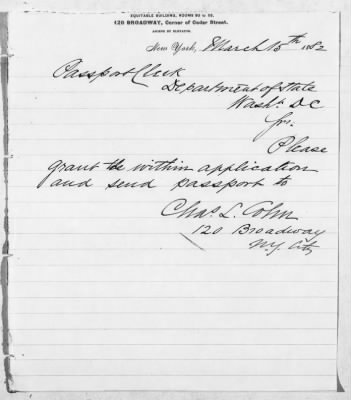 EQUITABLE BUILDING, ROOMS 90 to 95,
120 BROADWAY, Corner of Cedar Street.
ACCESS BY ELEVATOR.
New York, March 15th 1882
Passport Clerk
Department of State
Washt. D.C
Sir.
Please
grant the within application
and send passport to
Chas. L. Cohn
120 Broadway
N.Y. City